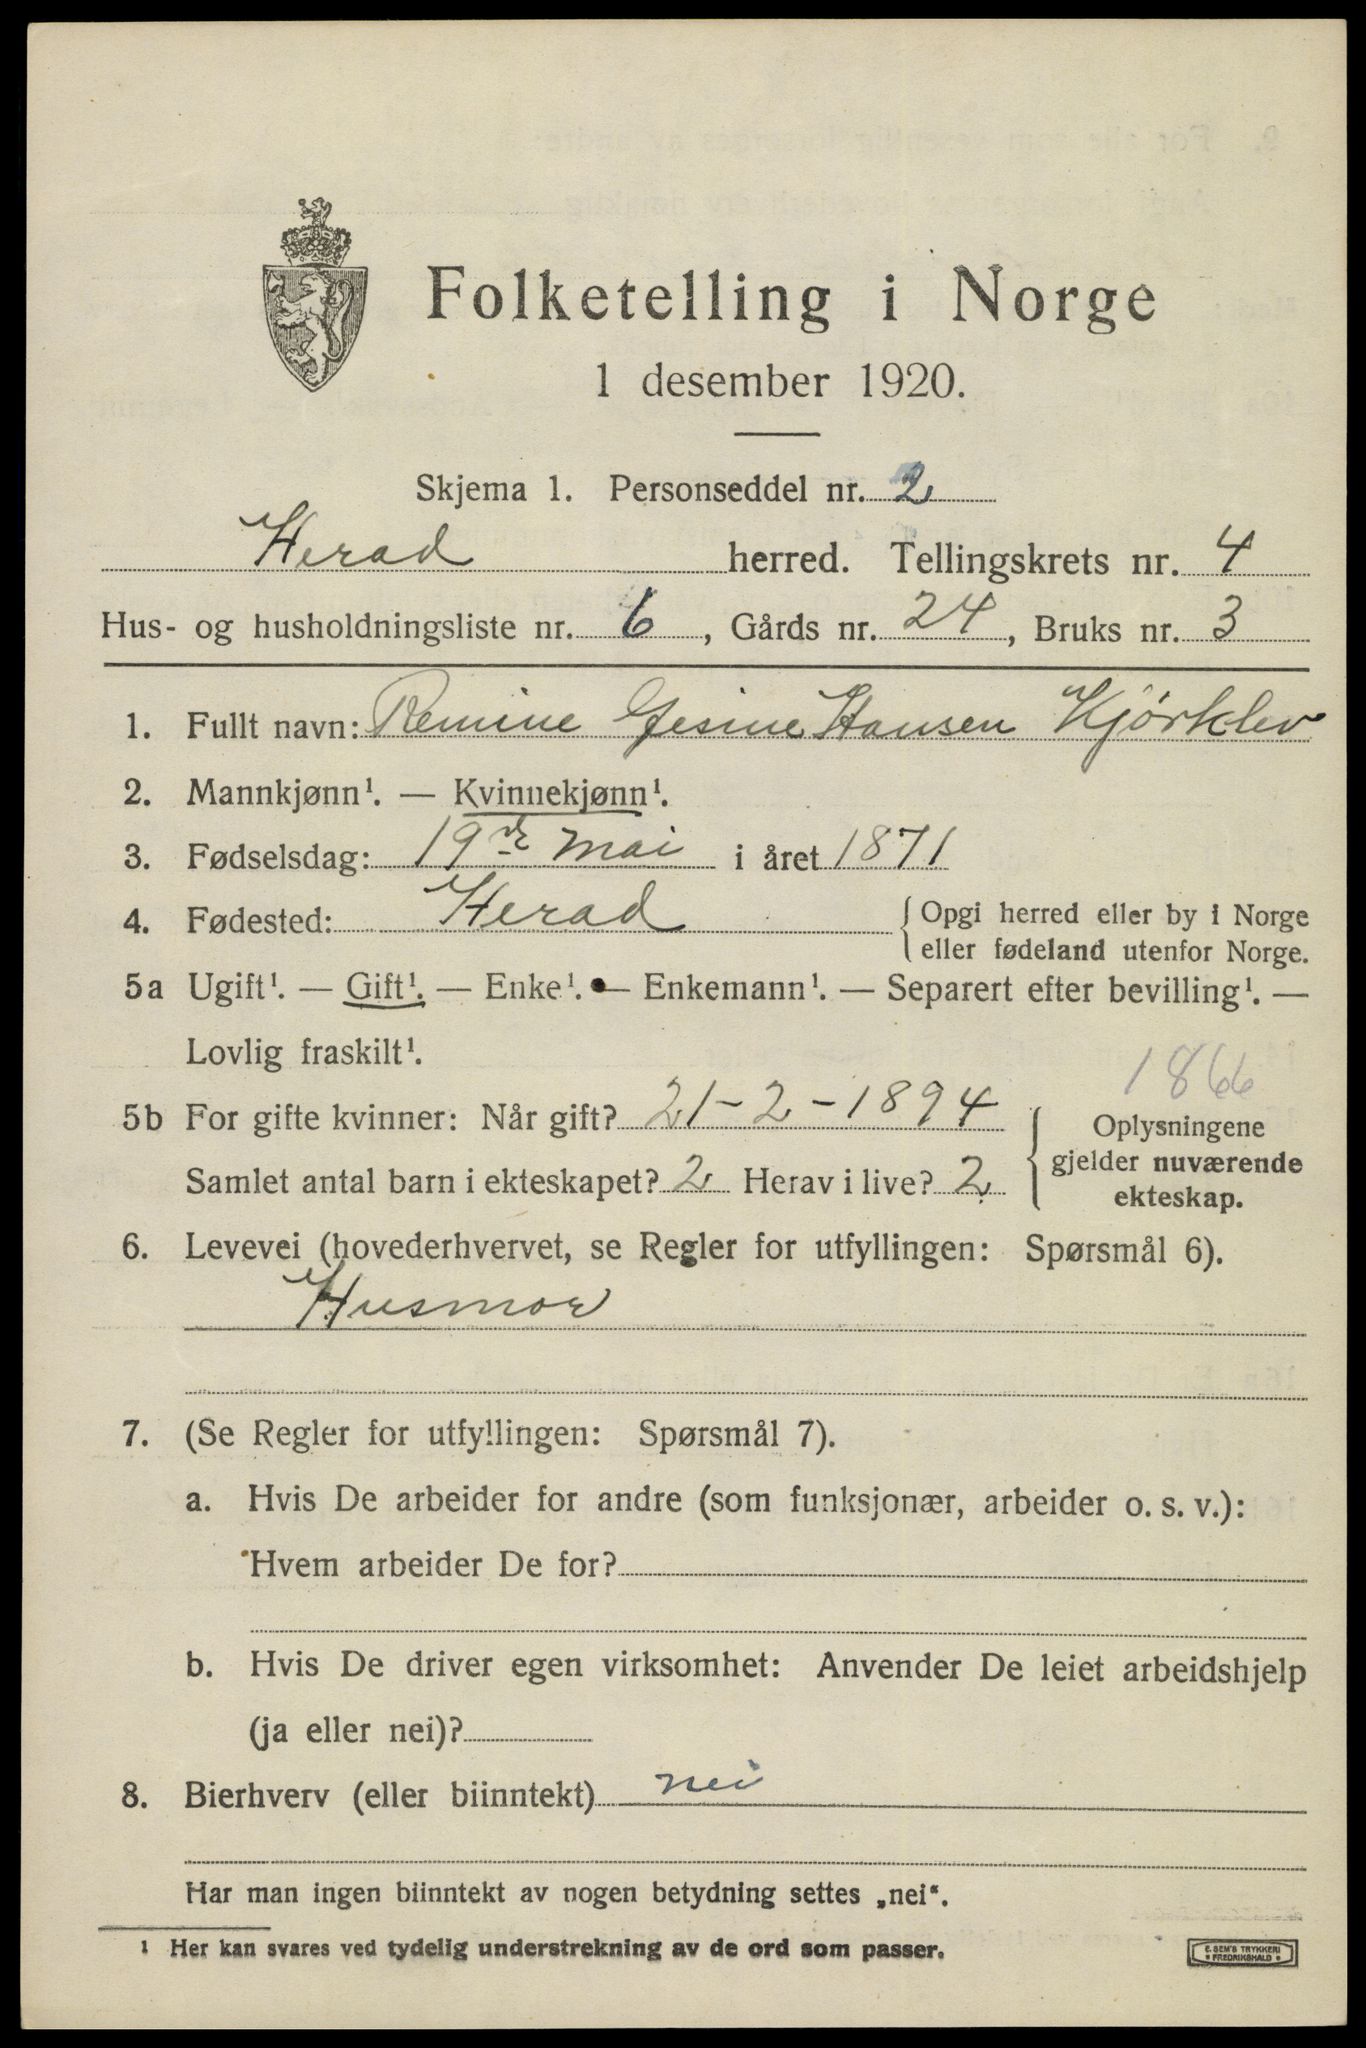 Folketelling i Norge
1 desember 1920.
Skjema 1. Personseddel nr. 2
Herad herred. Tellingskrets nr. 4
Hus- og husholdningsliste nr. 6, Gårds nr. 24, Bruks nr. 3
1. Fullt navn: Remine Gesine Hansen Kjörklev
2. Mannkjønn¹. — Kvinnekjønn¹.
3. Fødselsdag: 19de mai i året 1871
4. Fødested: Herad { Opgi herred eller by i Norge
eller fødeland utenfor Norge.
5a Ugift¹. — Gift¹. — Enke¹. — Enkemann¹. — Separert efter bevilling¹. —
Lovlig fraskilt¹.
1866
5b For gifte kvinner: Når gift? 21-2-1894
Samlet antal barn i ekteskapet? 2 Herav i live? 2
Oplysningene
gjelder nuværende
ekteskap.
6. Levevei (hovederhvervet, se Regler for utfyllingen: Spørsmål 6).
Husmor
7. (Se Regler for utfyllingen: Spørsmål 7).
a. Hvis De arbeider for andre (som funksjonær, arbeider o. s. v.):
Hvem arbeider De for?
b. Hvis De driver egen virksomhet: Anvender De leiet arbeidshjelp
(ja eller nei)?
8. Bierhverv (eller biinntekt) nei
Har man ingen biinntekt av nogen betydning settes „nei“.
¹ Her kan svares ved tydelig understrekning av de ord som passer.
E. SEM'S TRYKKERI
FREDRIKSHALD